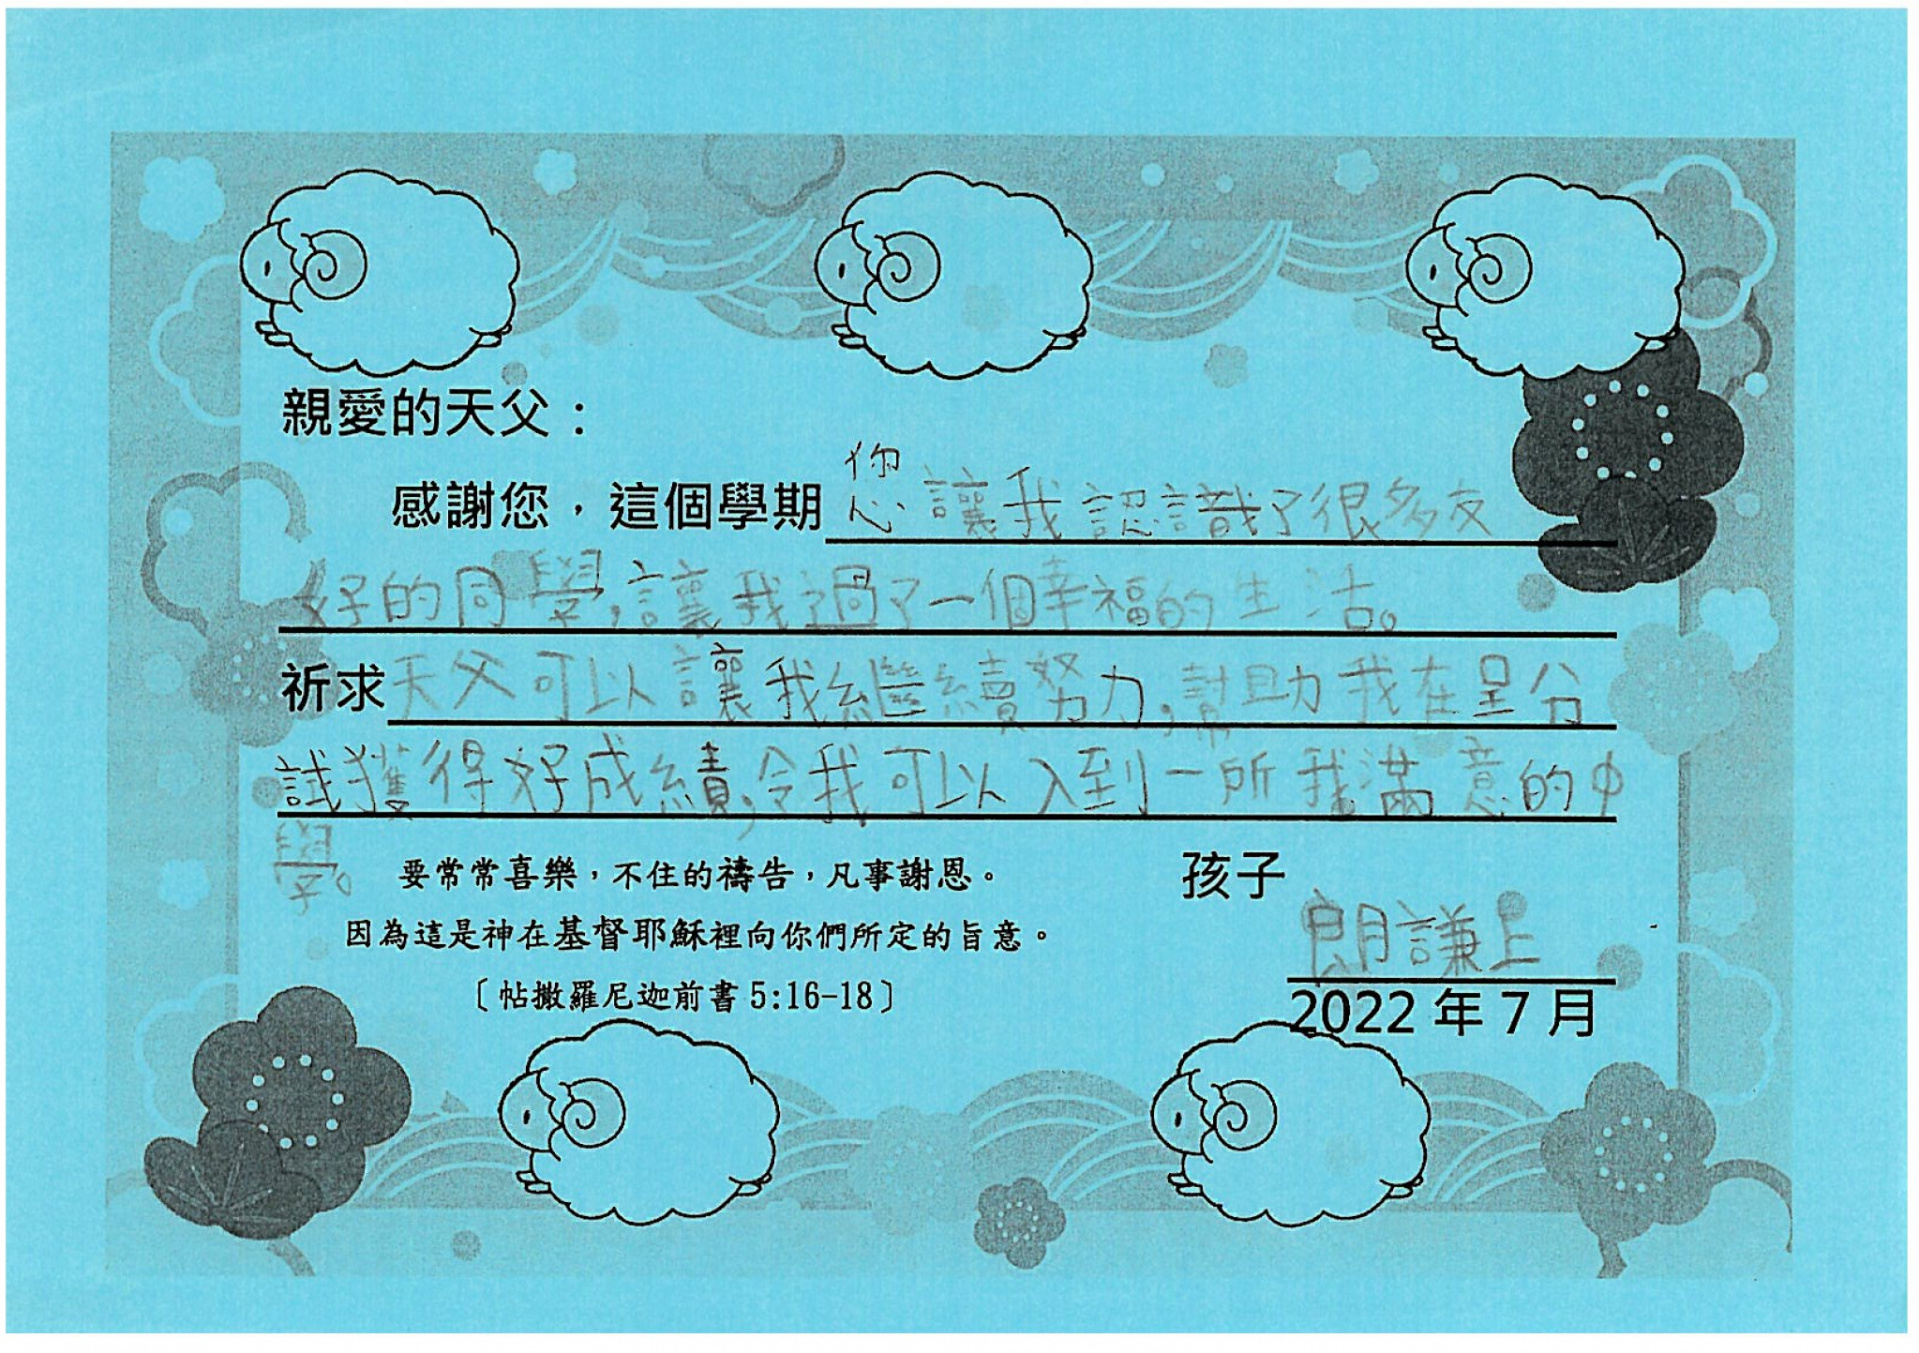 親愛的天父：
感謝您，這個學期您讓我認識了很多友
好的同學，讓我過了一個幸福的生活。
祈求天父可以讓我繼續努力，幫助我在呈分
試獲得好成績，令我可以入到一所我滿意的中
學。
要常常喜樂，不住的禱告，凡事謝恩。
因為這是神在基督耶穌裡向你們所定的旨意。
〔帖撒羅尼迦前書 5:16-18〕
孩子
朗謙上
2022 年 7 月